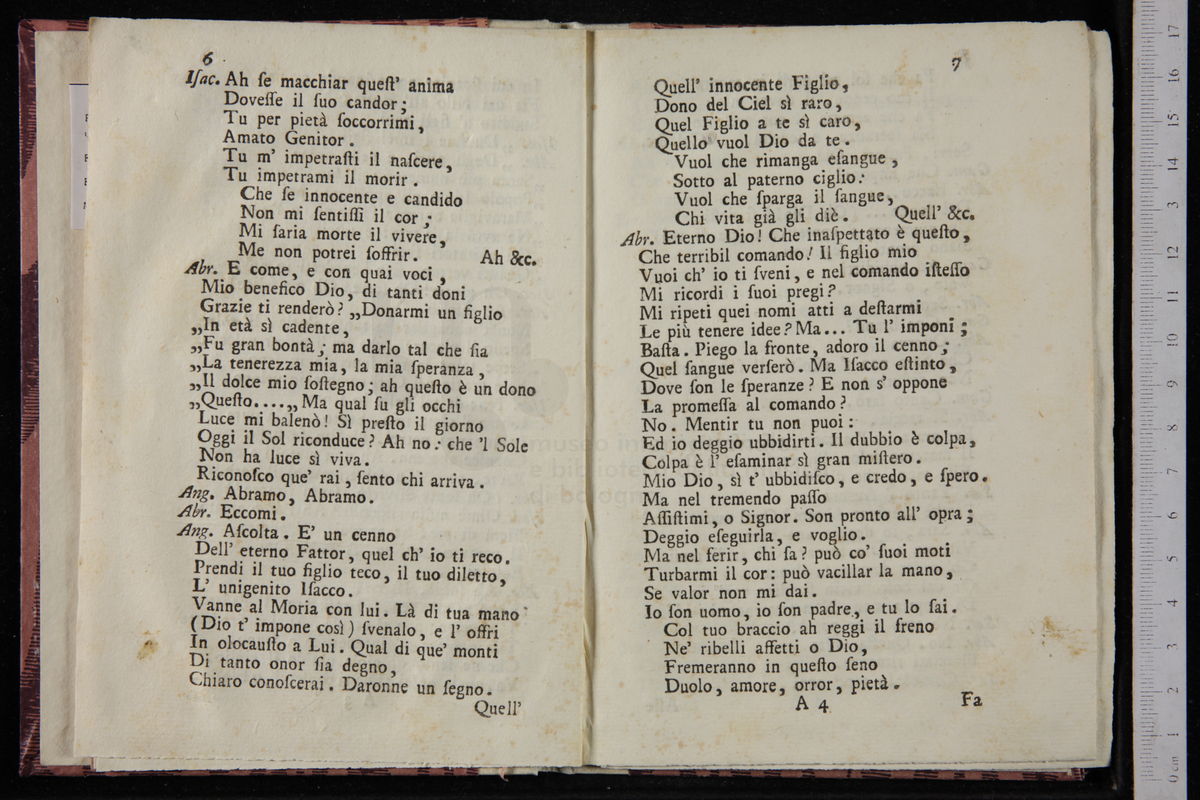 6
Iſac. Ah ſe macchiar queſt' anima
Doveſſe il ſuo candor;
Tu per pietà ſoccorrimi,
Amato Genitor.
Tu m' impetraſti il naſcere,
Tu impetrami il morir.
Che ſe innocente e candido
Non mi ſentiſſi il cor;
Mi ſaria morte il vivere,
Me non potrei ſoffrir. Ah &c.
Abr. E come, e con quai voci,
Mio benefico Dio, di tanti doni
Grazie ti renderò? „Donarmi un figlio
„In età sì cadente,
„Fu gran bontà; ma darlo tal che ſia
„La tenerezza mia, la mia ſperanza,
„Il dolce mio ſoſtegno; ah queſto è un dono
„Queſto....„ Ma qual ſu gli occhi
Luce mi balenò! Sì preſto il giorno
Oggi il Sol riconduce? Ah no: che 'l Sole
Non ha luce sì viva.
Riconoſco que' rai, ſento chi arriva.
Ang. Abramo, Abramo.
Abr. Eccomi.
Ang. Aſcolta. E' un cenno
Dell' eterno Fattor, quel ch' io ti reco.
Prendi il tuo figlio teco, il tuo diletto,
L' unigenito Iſacco.
Vanne al Moria con lui. Là di tua mano
(Dio t' impone così) ſvenalo, e l' offri
In olocauſto a Lui. Qual di que' monti
Di tanto onor ſia degno,
Chiaro conoſcerai. Daronne un ſegno.
Quell'
7
Quell' innocente Figlio,
Dono del Ciel sì raro,
Quel Figlio a te sì caro,
Quello vuol Dio da te.
Vuol che rimanga eſangue,
Sotto al paterno ciglio:
Vuol che ſparga il ſangue,
Chi vita già gli diè. Quell' &c.
Abr. Eterno Dio! Che inaſpettato è queſto,
Che terribil comando! Il figlio mio
Vuoi ch' io ti ſveni, e nel comando iſteſſo
Mi ricordi i ſuoi pregi?
Mi ripeti quei nomi atti a deſtarmi
Le più tenere idee? Ma... Tu l' imponi;
Baſta. Piego la fronte, adoro il cenno;
Quel ſangue verſerò. Ma Iſacco eſtinto,
Dove ſon le ſperanze? E non s' oppone
La promeſſa al comando?
No. Mentir tu non puoi:
Ed io deggio ubbidirti. Il dubbio è colpa,
Colpa è l' eſaminar sì gran miſtero.
Mio Dio, sì t' ubbidiſco, e credo, e ſpero.
Ma nel tremendo paſſo
Aſſiſtimi, o Signor. Son pronto all' opra;
Deggio eſeguirla, e voglio.
Ma nel ferir, chi ſa? può co' ſuoi moti
Turbarmi il cor: può vacillar la mano,
Se valor non mi dai.
Io ſon uomo, io ſon padre, e tu lo ſai.
Col tuo braccio ah reggi il freno
Ne' ribelli affetti o Dio,
Fremeranno in queſto ſeno
Duolo, amore, orror, pietà.
A 4 Fa